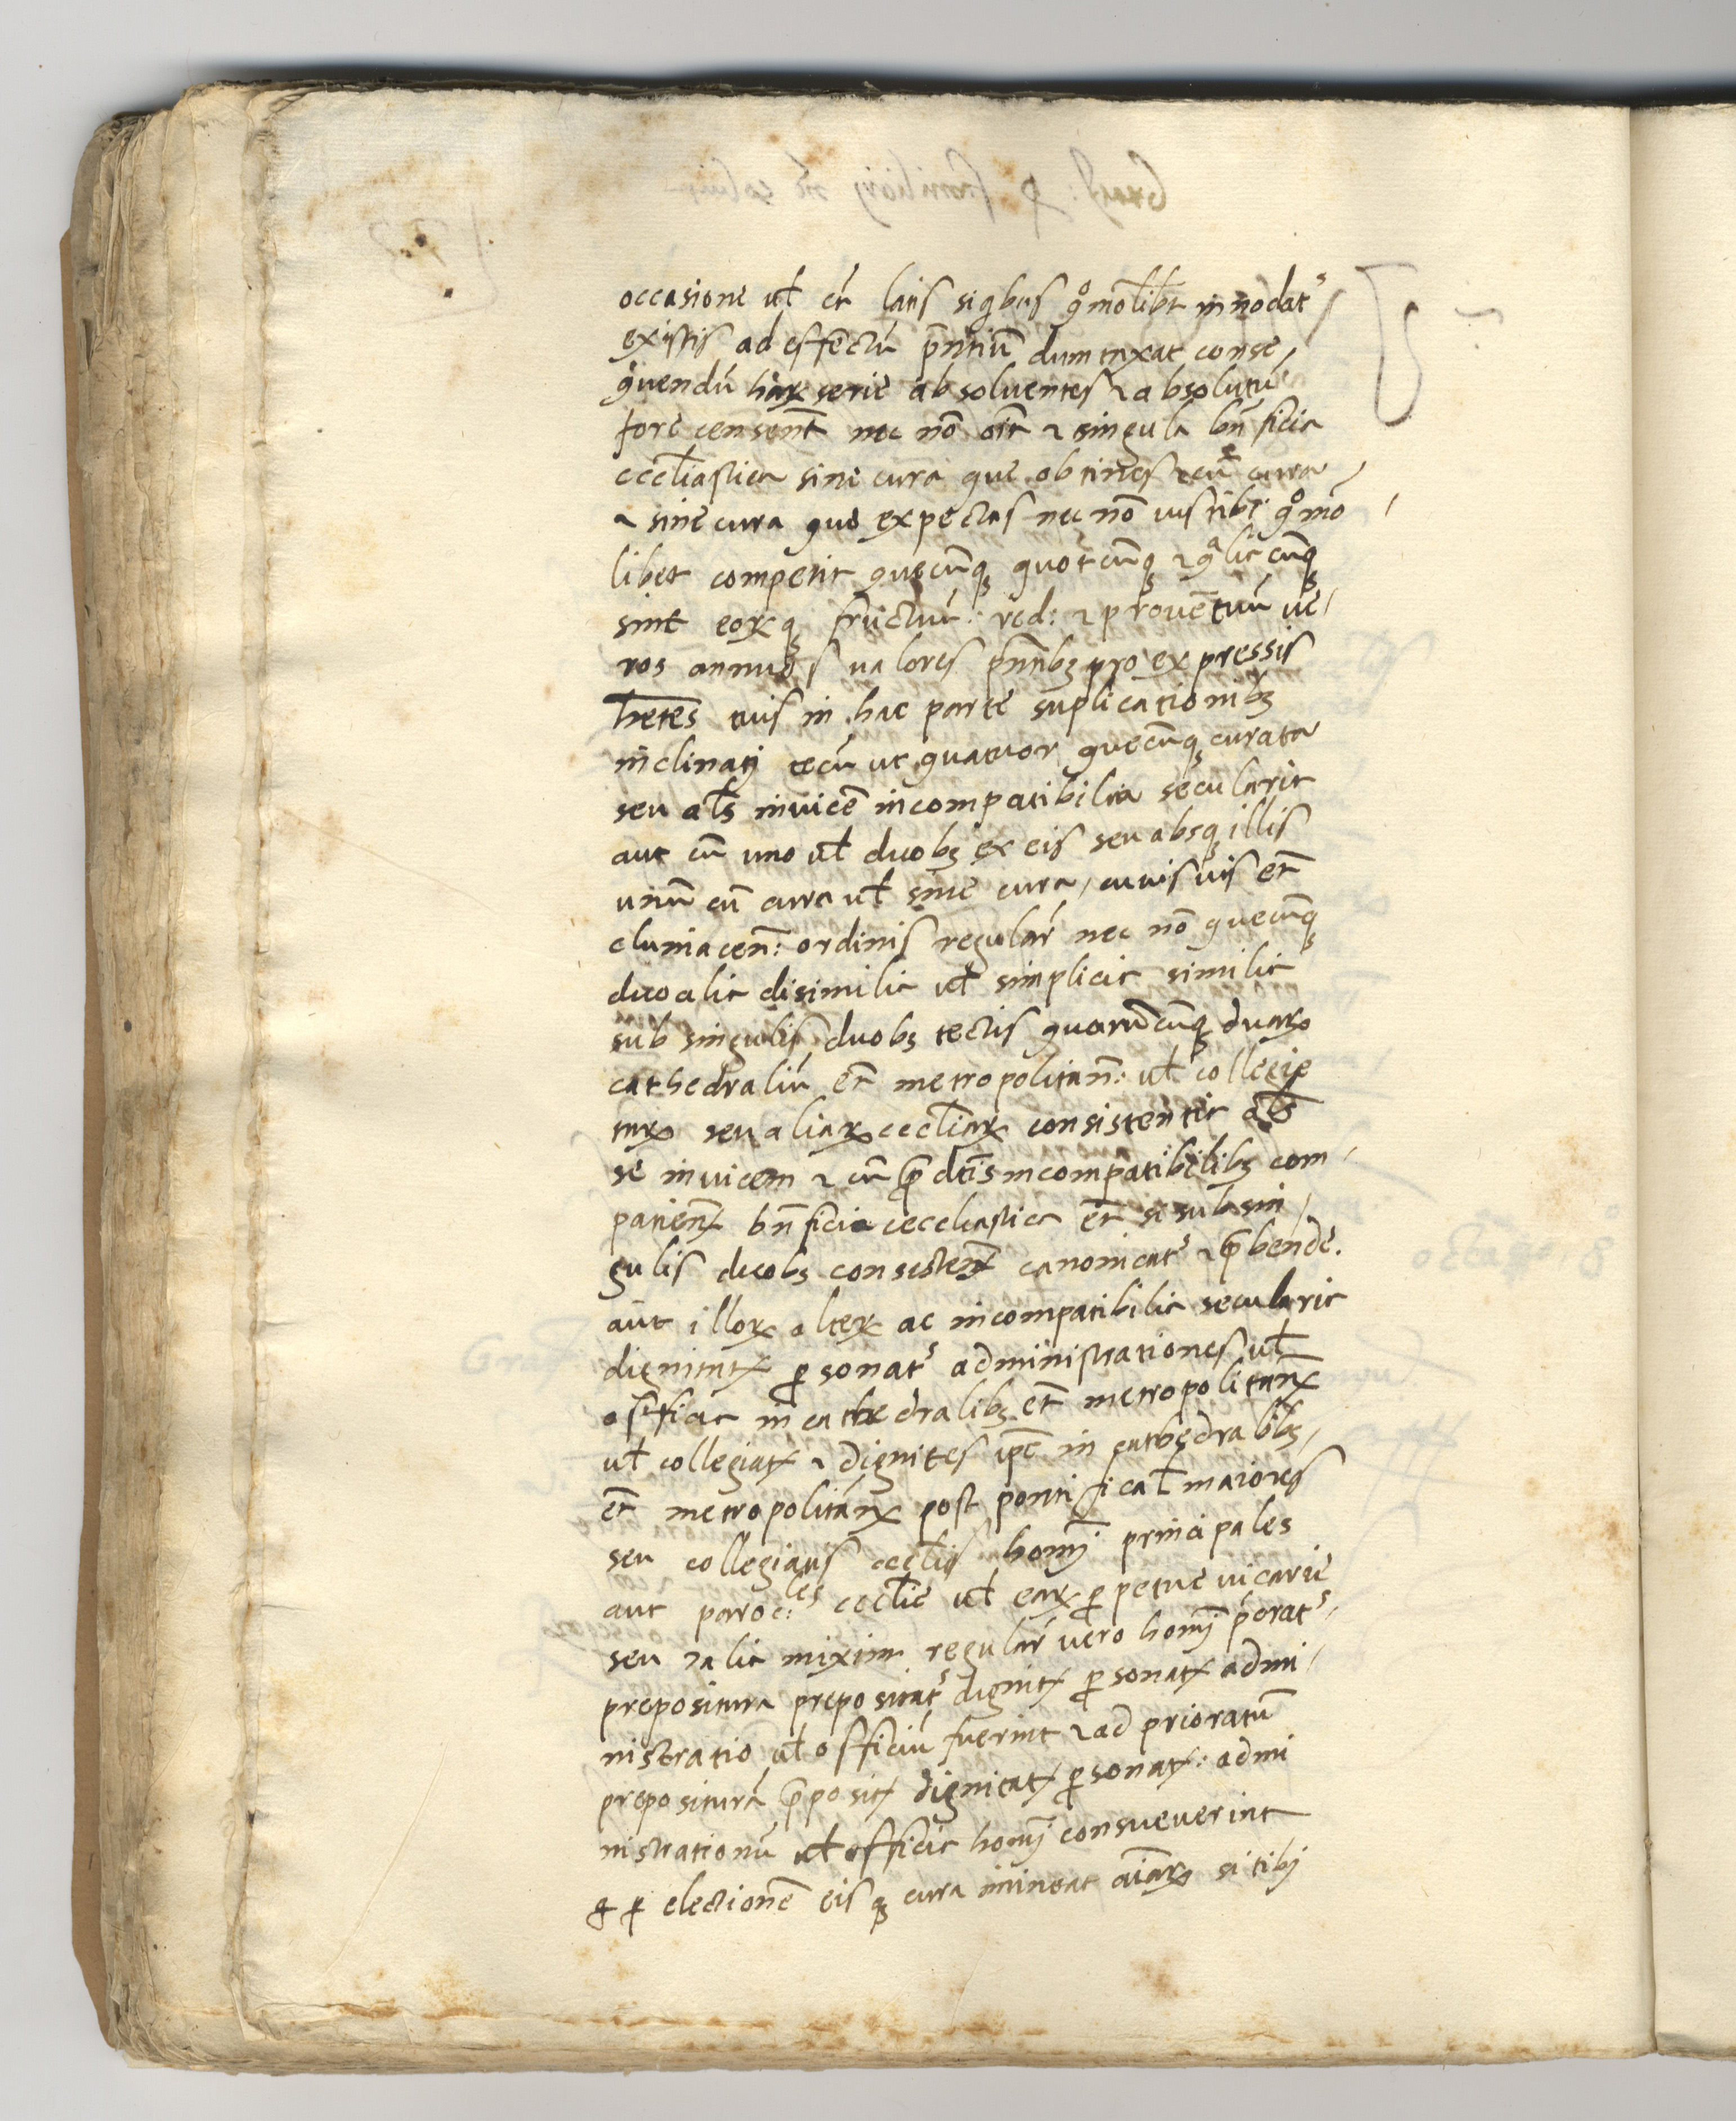 occasione vl̃ cã latis siqbus qͦmõlibt innodatˢ
existis ad effectũ pñtium̃ dumtaxat conse,
quendũ harꝝ serie absoluentes ⁊ absolutũ
fore censent̃ nec nõ oĩa ⁊ singula bñficia
eccl̃iastica sine cura que obtines ⁊ cũ cura,
⁊ sine cura que expectas nec nõ ius tibi qͦmõ,
libet competit quecũqꝫ quotcũqꝫ ⁊ qᵃliacũqꝫ
sint eorꝝqꝫ fructuũ: red: ⁊ prouẽtuũ ue,
ros annuos ualores pñtibꝫ pro expressis
hẽtes tuis in hac parte suplicationibꝫ
inclinatj tecũ ut quatuor quecũqꝫ curata
seu al̃s inuicẽ incompatibilia secularia
aut cũ uno vl̃ duobꝫ ex eis seu absqꝫ illis
unũ cũ cura vl̃ sine cura, cuiusuis et̃
cluniacen̄: ordinis regularẽ nec nõ quecũqꝫ
duo alia disimilia vl̃ simplicia similia
sub singulis duobꝫ tectis quarũcũqꝫ duarꝝ
cathedraliũ et̃ metropolitan̄: vl̃ collegia
tarꝝ seu aliarꝝ eccl̃iarꝝ consistentia al̃s
se inuicem ⁊ cũ p̃dctĩs incompatibilibꝫ com,
patient̃ bñficia ecceliastica et̃ si sub sin,
gulis duobꝫ consistent̃ canonicatˢ ⁊ p̃bende.
aut illorꝝ alterꝝ ac incompatibilia secularia
dignitatꝝ ꝑsonatˢ administrationes vl̃
officia in cathedralibꝫ et̃ metropolitanꝝ
vl̃ collegiatꝝ ⁊ dignitẽs ipẽ in cathedralibꝫ,
et̃ metropolitanꝝ post pontifical̃ maiores
seu collegiatis eccl̃ijs hom̃j principales
aut paroc:les eccl̃ie vl̃ earꝝ ꝑpetue uicarie
seu ⁊ alia mixim regularẽ uero hom̃j p̃oratˢ,
prepositura prepositatˢ dignitꝝ ꝑsonatꝝ admi,
nistratio vl̃ officiũ fuerint ⁊ ad prioratũ
prepositurã p̃positꝝ dignitatꝝ ꝑsonatꝝ: admi
nistrationũ vl̃ officia hom̃j consueuerint
q ꝑ electionẽ eisqꝫ cura imineat aĩarꝝ si tibj